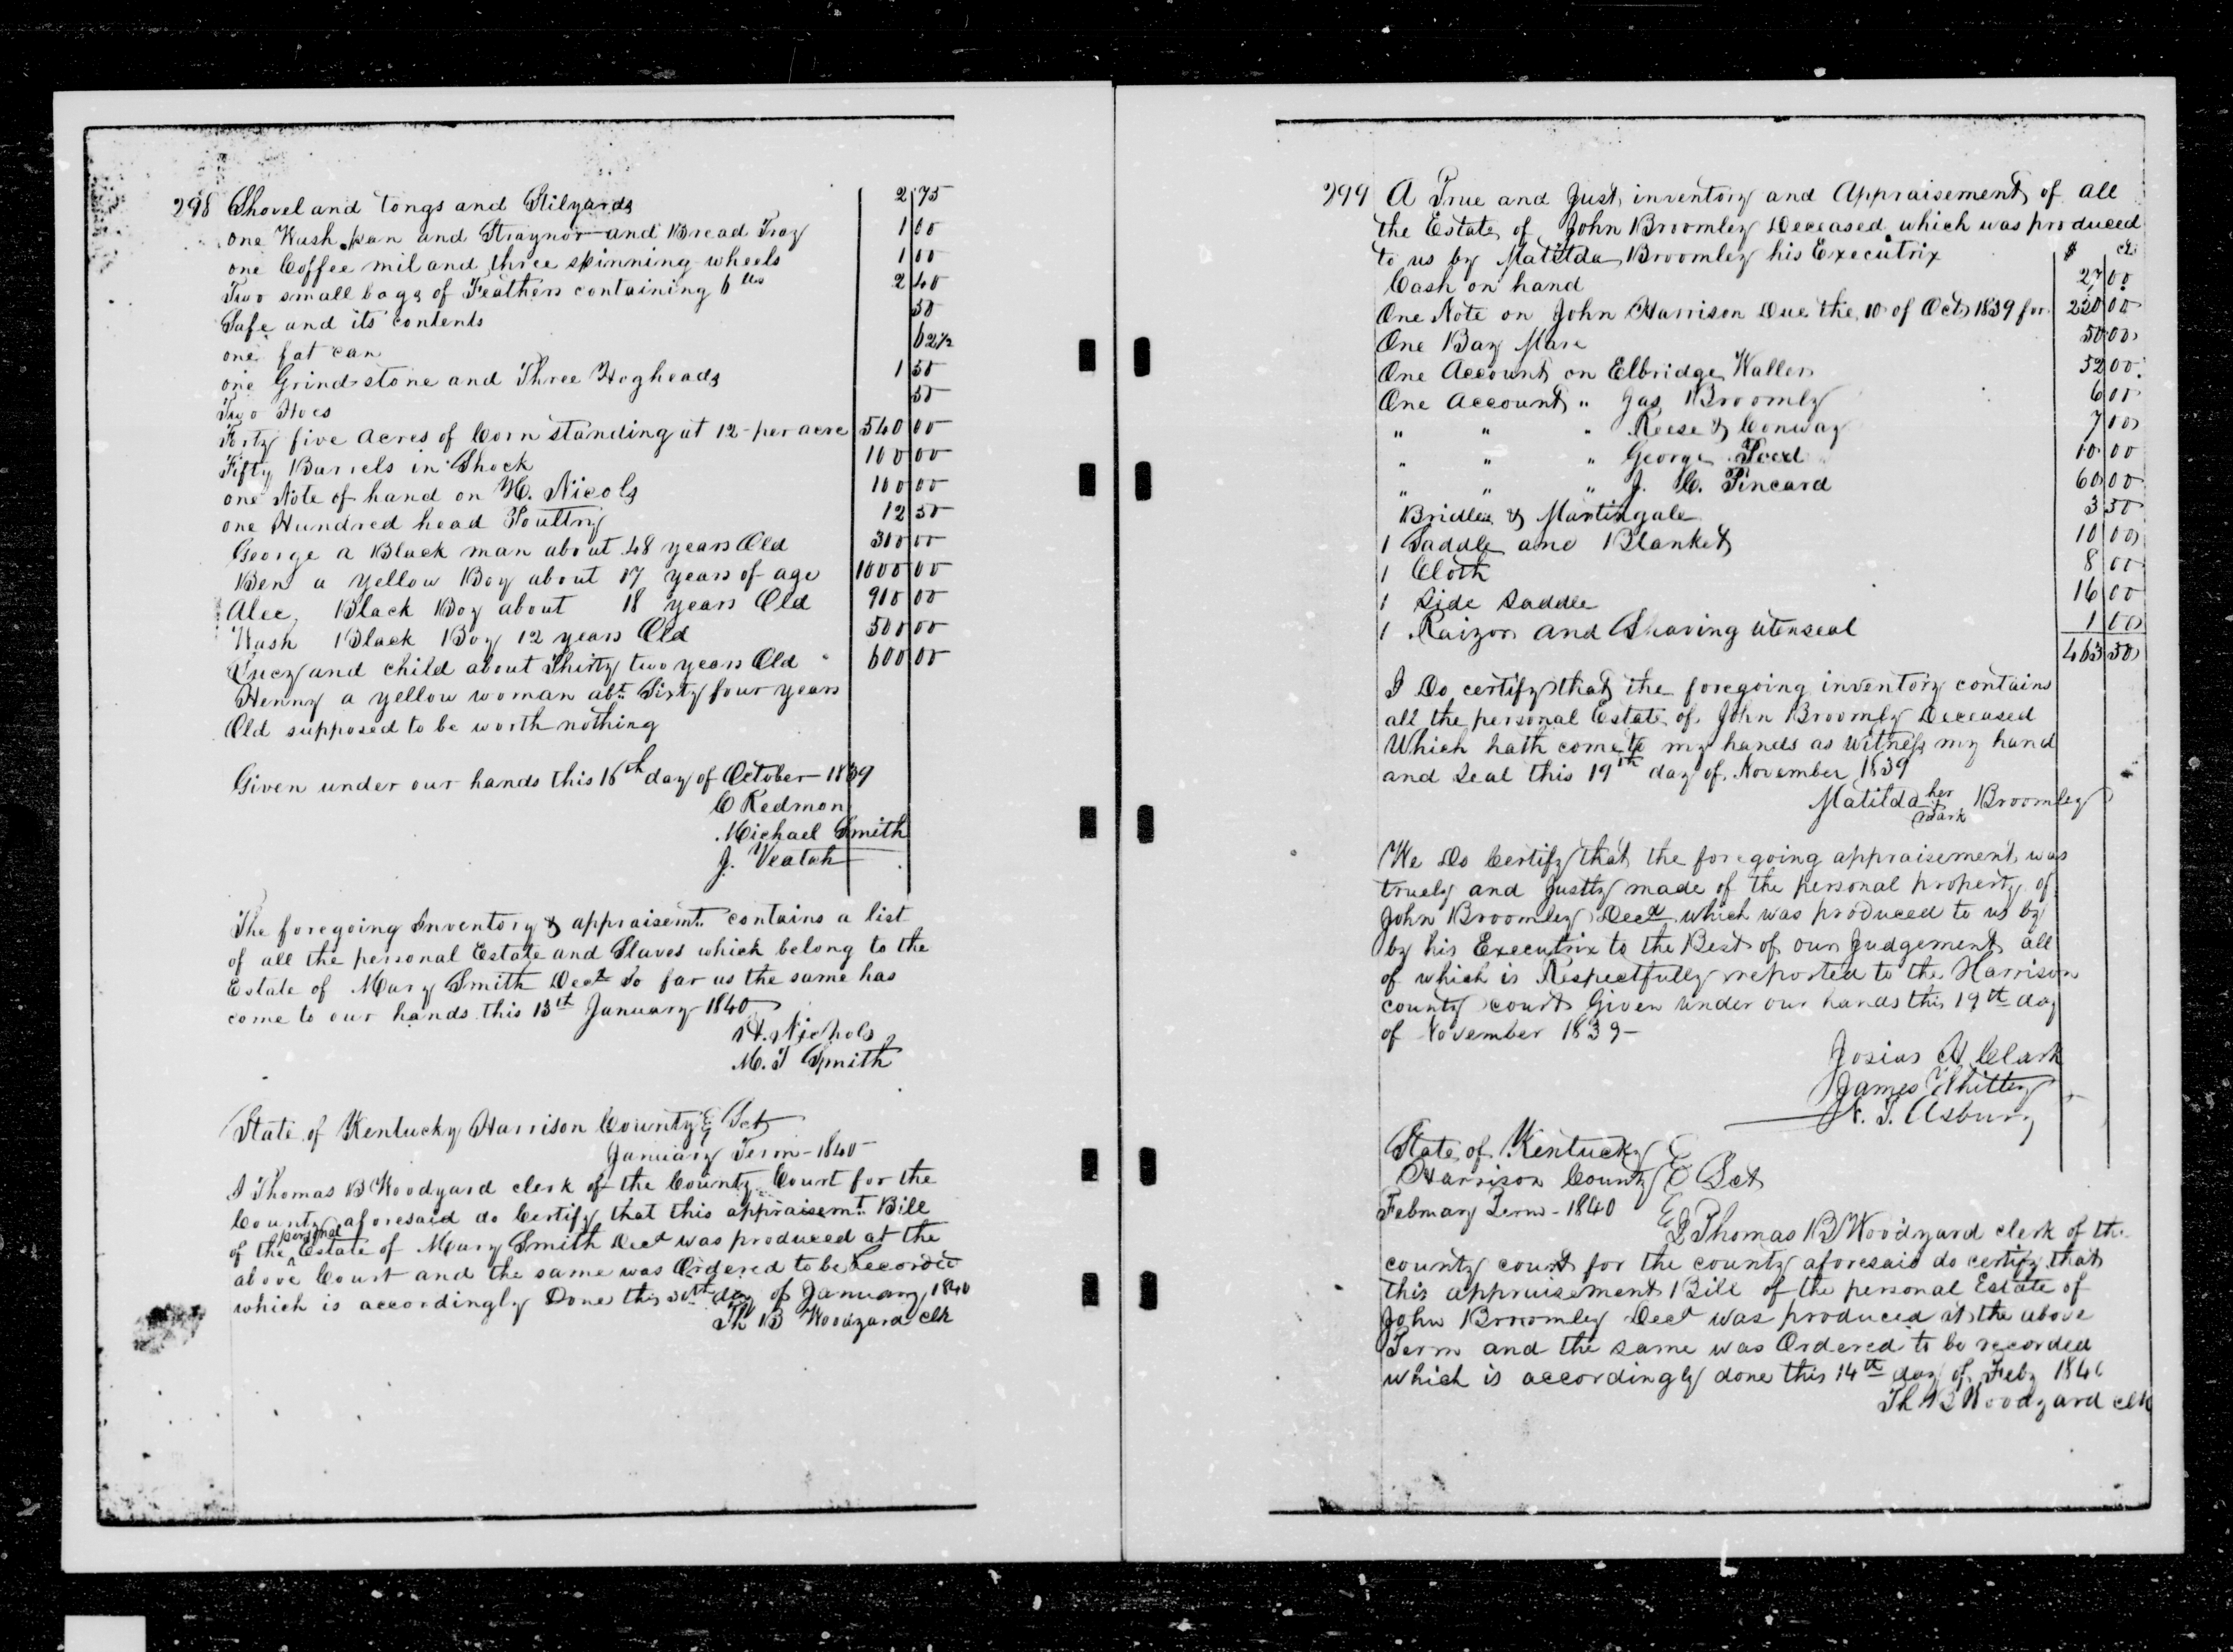 298 Shovel and tongs and Stilyards 2 75
one Wash pan and Straynor and Bread Tray 1 00
one Coffee mil and three spinning wheels 1 00
Two small bags of Feathers containing 6 lbs 2 40
Safe and its contents 50
one fat can 62½
one Grindstone and Three Hogheads 1 50
Two Hoes 50
Forty five Acres of Corn standing at 12 - per acre 540 00
Fifty Barrels in Shock 100 00
one Note of hand on H. Nicols 100 00
one Hundred head Poultry 12 50
George a Black man about 48 years Old 300 00
Ben a yellow Boy about 17 years of age 1000 00
Alec, Black Boy about 18 years Old 900 00
Wash Black Boy 12 years Old 500 00
Lucy and child about Thirty two years Old 600 00
Henny a yellow woman abt. Sixty four years
Old supposed to be worth nothing
Given under our hands this 16th day of October 1839
C Redmon
Michael Smith
J. Veatch
The foregoing Inventory & appraisemt. contains a list
of all the personal Estate and Slaves which belong to the
Estate of Mary Smith Decd. so far as the same has
come to our hands this 13th January 1840
H. Nichols
M. T Smith
State of Kentucky Harrison County Sct
January Term - 1840
I Thomas B Woodyard clerk of the County Court for the
County aforesaid do Certify that this appraisemt. Bill
of the personal Estate of Mary Smith Decd was produced at the
above Court and the same was Ordered to be Recorded
which is accordingly Done this 30th day of January 1840
Th B Woodyard clk
299 A True and Just inventory and Appraisement of all
the Estate of John Broomley Deceased which was produced
to us by Matilda Broomley his Executrix $ cts
Cash on hand 27 00
One Note on John Harrison Due the 10 of Oct 1839 for 220 00
One Bay Mare 50 00
One Account on Elbridge Waller 52 00
One Account " Gas Broomly 6 00
" " " Reese & Conway 7 00
" " " George 10 00
" " " J. C. Pincard 60 00
Bridle & Martingale 3 50
1 Saddle and Blanket 10 00
1 Cloth 8 00
1 Side Saddle 16 00
1 Raizor and Shaving utenseal 1 00
463 50
I Do certify that the foregoing inventory contains
all the personal Estate of John Broomly Deceased
Which hath come to my hands as witness my hand
and Seal this 19th day of November 1839
Matilda her mark Broomley
We Do Certify that the foregoing appraisement was
truely and Justly made of the personal property of
John Broomley Decd which was produced to us by
by his Executrix to the Best of our Judgement all
of which is Respectfully reported to the Harrison
county court Given under our hands this 19th day
of November 1839 -
Josias H Clark
James Whitley
N. T. Asbury
State of Kentucky
Harrison County Sct
February Term - 1840
I Thomas B Woodyard clerk of the
county court for the county aforesaid do certify that
this appraisement Bill of the personal Estate of
John Broomley Decd was produced at the above
Term and the same was Ordered to be recorded
which is accordingly done this 14th day of Feby 1840
Th B Woodyard clk